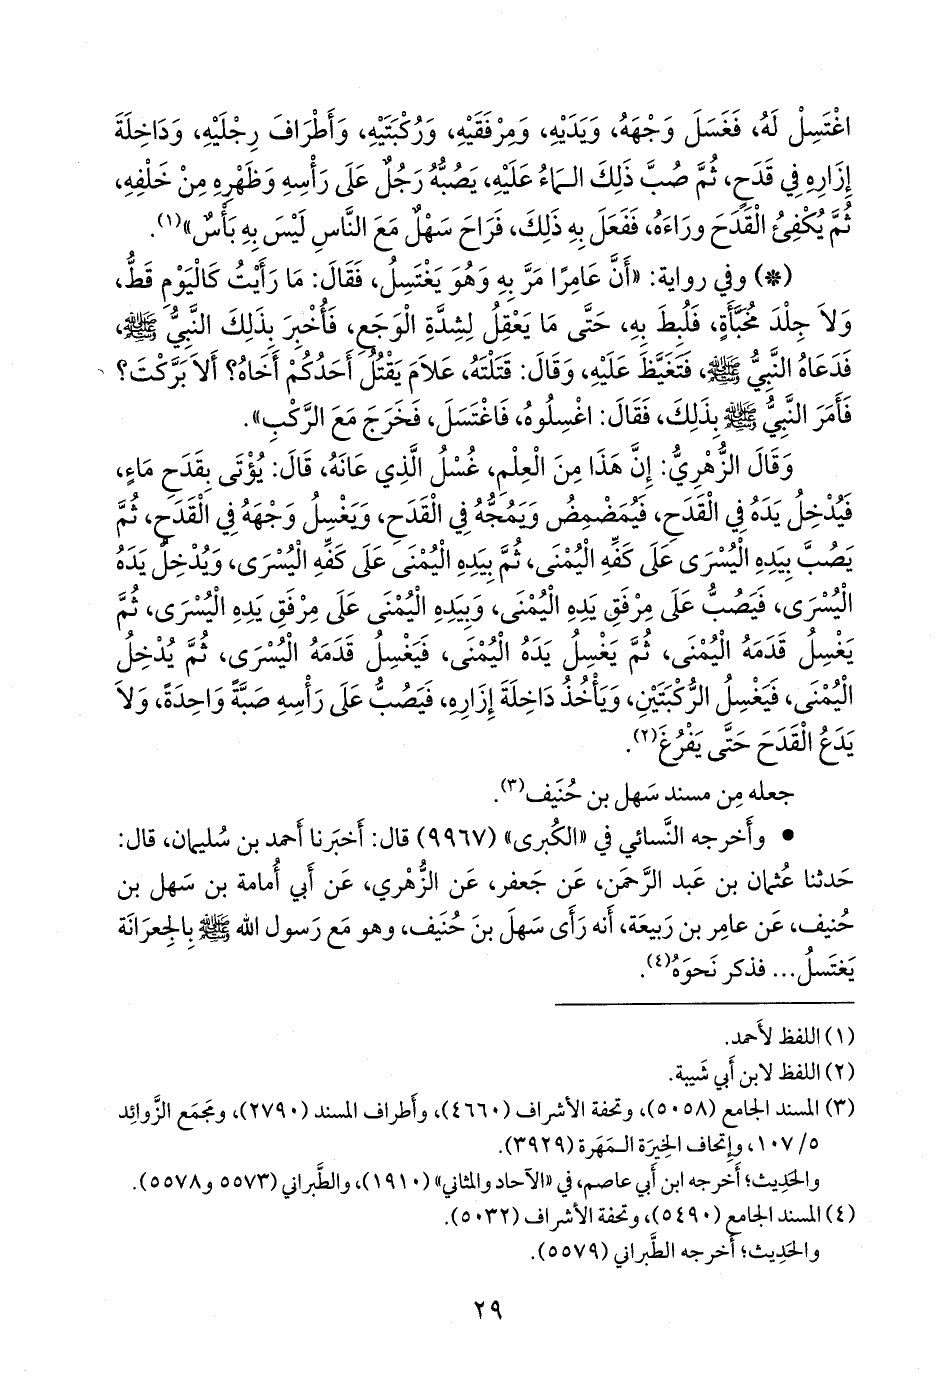 اغْتَسِلْ لَهُ، فَغَسَلَ وَجْهَهُ، وَيَدَيْهِ، وَمِرْفَقَيْهِ، وَرُكْبَتَيْهِ، وَأَطْرَافَ رِجْلَيْهِ، وَدَاخِلَةَ
إِزَارِهِ فِي قَدَحٍ، ثُمَّ صُبَّ ذَلِكَ الـمَاءُ عَلَيْهِ، يَصُبُّهُ رَجُلٌ عَلَى رَأْسِهِ وَظَهْرِهِ مِنْ خَلْفِهِ،
ثُمَّ يُكْفِئُ الْقَدَحَ وَرَاءَهُ، فَفَعَلَ بِهِ ذَلِكَ، فَرَاحَ سَهْلٌ مَعَ النَّاسِ لَيْسَ بِهِ بَأْسٌ»(١).
(*) وفي رواية: «أَنَّ عَامِرًا مَرَّ بِهِ وَهُوَ يَغْتَسِلُ، فَقَالَ: مَا رَأَيْتُ كَالْيَوْمِ قَطُّ،
وَلاَ جِلْدَ مُخَبَّأَةٍ، فَلُبِطَ بِهِ، حَتَّى مَا يَعْقِلُ لِشِدَّةِ الْوَجَعِ، فَأُخْبِرَ بِذَلِكَ النَّبِيُّ ﷺ،
فَدَعَاهُ النَّبِيُّ ﷺ، فَتَغَيَّظَ عَلَيْهِ، وَقَالَ: قَتَلْتَهُ، عَلاَمَ يَقْتُلُ أَحَدُكُمْ أَخَاهُ؟ أَلاَ بَرَّكْتَ؟
فَأَمَرَ النَّبِيُّ ﷺ بِذَلِكَ، فَقَالَ: اغْسِلُوهُ، فَاغْتَسَلَ، فَخَرَجَ مَعَ الرَّكْبِ».
وَقَالَ الزُّهْرِيُّ: إِنَّ هَذَا مِنَ الْعِلْمِ، غُسْلُ الَّذِي عَانَهُ، قَالَ: يُؤْتَى بِقَدَحِ مَاءٍ،
فَيُدْخِلُ يَدَهُ فِي الْقَدَحِ، فَيُمَضْمِضُ وَيَمُجُّهُ فِي الْقَدَحِ، وَيَغْسِلُ وَجْهَهُ فِي الْقَدَحِ، ثُمَّ
يَصُبُّ بِيَدِهِ الْيُسْرَى عَلَى كَفِّهِ الْيُمْنَى، ثُمَّ بِيَدِهِ الْيُمْنَى عَلَى كَفِّهِ الْيُسْرَى، وَيُدْخِلُ يَدَهُ
الْيُسْرَى، فَيَصُبُّ عَلَى مِرْفَقِ يَدِهِ الْيُمْنَى، وَبِيَدِهِ الْيُمْنَى عَلَى مِرْفَقِ يَدِهِ الْيُسْرَى، ثُمَّ
يَغْسِلُ قَدَمَهُ الْيُمْنَى، ثُمَّ يَغْسِلُ يَدَهُ الْيُمْنَى، فَيَغْسِلُ قَدَمَهُ الْيُسْرَى، ثُمَّ يُدْخِلُ
الْيُمْنَى، فَيَغْسِلُ الرُّكْبَتَيْنِ، وَيَأْخُذُ دَاخِلَةَ إِزَارِهِ، فَيَصُبُّ عَلَى رَأْسِهِ صَبَّةً وَاحِدَةً، وَلاَ
يَدَعُ الْقَدَحَ حَتَّى يَفْرُغَ(٢).
جعله مِن مسند سَهل بن حُنَيف(٣).
• وأَخرجه النَّسائي في «الكُبرى» (٩٩٦٧) قال: أَخبَرنا أَحمد بن سُليمان، قال:
حَدثنا عُثمان بن عَبد الرَّحمَن، عَن جَعفر، عَن الزُّهْري، عَن أَبي أُمامة بن سَهل بن
حُنيف، عَن عامِر بن رَبيعَة، أَنه رَأَى سَهلَ بنَ حُنَيف، وهو مَع رَسول الله ﷺ بِالجِعرَانَة
يَغتَسلُ... فذكر نَحوَهُ(٤).
(١) اللفظ لأَحمد.
(٢) اللفظ لابن أَبي شَيبة.
(٣) المسند الجامع (٥٠٥٨)، وتحفة الأشراف (٤٦٦٠)، وأَطراف المسند (٢٧٩٠)، ومَجمَع الزَّوائِد
٥/ ١٠٧، وإتحاف الخِيرَة الـمَهَرة (٣٩٢٩).
والحَدِيث؛ أَخرجه ابن أَبي عاصم، في «الآحاد والمثاني» (١٩١٠)، والطَّبراني (٥٥٧٣ و٥٥٧٨).
(٤) المسند الجامع (٥٤٩٠)، وتحفة الأشراف (٥٠٣٢).
والحَدِيث؛ أَخرجه الطَّبراني (٥٥٧٩).
٢٩